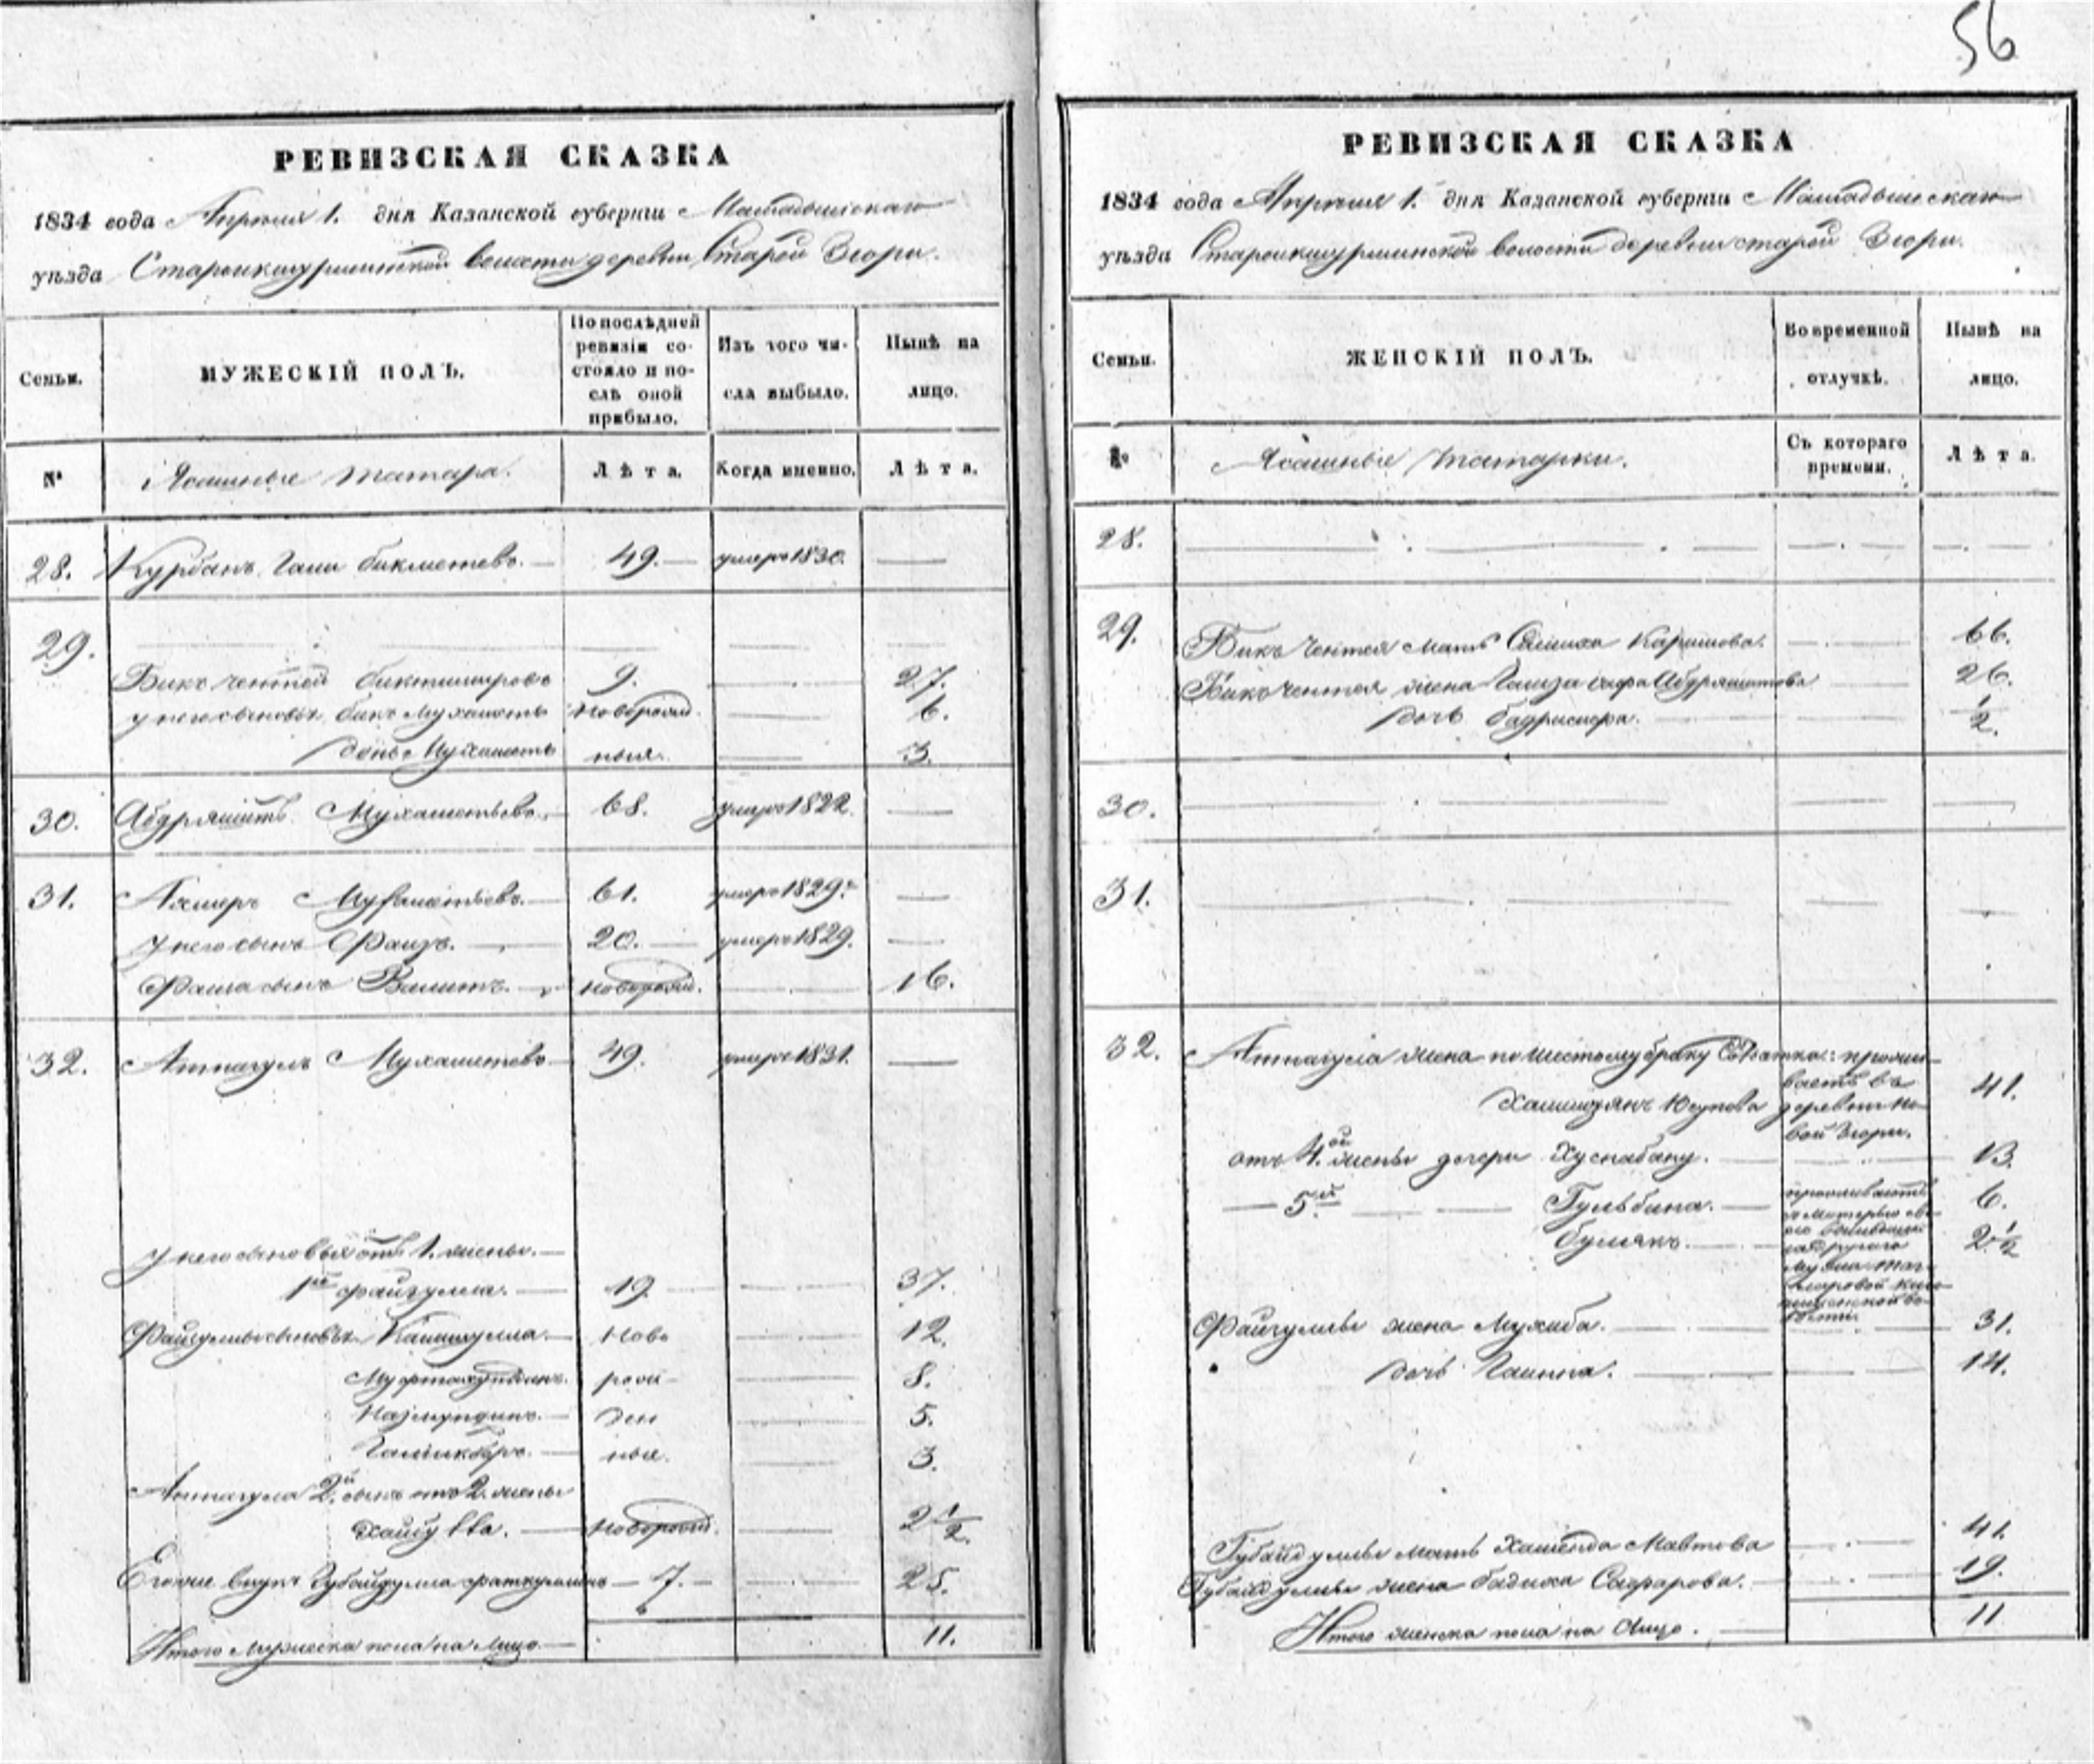 56
РЕВИЗСКАЯ СКАЗКА
1834 года Апреля 1. дня Казанской губернии Мамадышскаго
уѣзда Старокишурминской волости деревни Старой Зюри.
Семьи.
МУЖЕСКІЙ ПОЛЪ.
По послѣдней ревизіи состояло и послѣ оной прибыло.
Изъ того числа выбыло.
Нынѣ на лицо.
№
Ясашные татара.
Лѣта.
Когда именно.
Лѣта.
28. Курбанъ Гали бикметевъ. 49. умеръ 1830. —
29.
Бикчентей биктимировъ 9. — 27.
у него сыновья бикъ Мухаметъ новорож 6.
Мухаметъ ныя. 3.
30. Абдряшитъ Мухаметьевъ. 68. умеръ 1822. —
31. Мухаметьевъ. 61. умеръ 1829. —
у него сынъ Фаизъ. 20. умеръ 1829. —
сынъ Валитъ. новорож. — 16.
32. Аптагулъ Мухаметевъ 49. умеръ 1831. —
у него сыновья отъ 1. жены.
1й файзулла. 19. — 37.
Файзуллы сыновья 	ново — 12.
рож — 8.
Назмутдинъ. ден — 5.
ные. 3.
Аптагула 2й сынъ отъ 2. жены
новорож. — 2 1/2.
Его же внукъ Губайдулла фаткулинъ 7. — 25.
Итого мужеска пола на лицо. 11.
РЕВИЗСКАЯ СКАЗКА
1834 года Апреля 1. дня Казанской губернии Мамадышскаго
уѣзда Старокишурминской волости деревни старой Зюри.
Семьи.
ЖЕНСКІЙ ПОЛЪ.
Во временной отлучкѣ.
Нынѣ на лицо.
№
Ясашные татарки.
Съ котораго времени.
Лѣта.
28. —
29. Бикчентея мать Салиха Каримова. — 66.
Бикчентея жена Абдряшитова 26.
дочь 1/2.
30. —
31. —
32. Аптагула жена по шестому браку прожи-
ваетъ въ 41.
Юсупова деревни Но-
вой Зюри.
отъ 4ой жены дочери Хуснабану. — 13.
— 5й — Гульбина. — проживаютъ 6.
булякъ. — 2 1/2
Файзуллы жена Мухиба. — 31.
дочь — 14.
Губайдуллы мать 41.
Губайдуллы жена бадиха Сафарова. 19.
Итого женска пола на лицо. 11